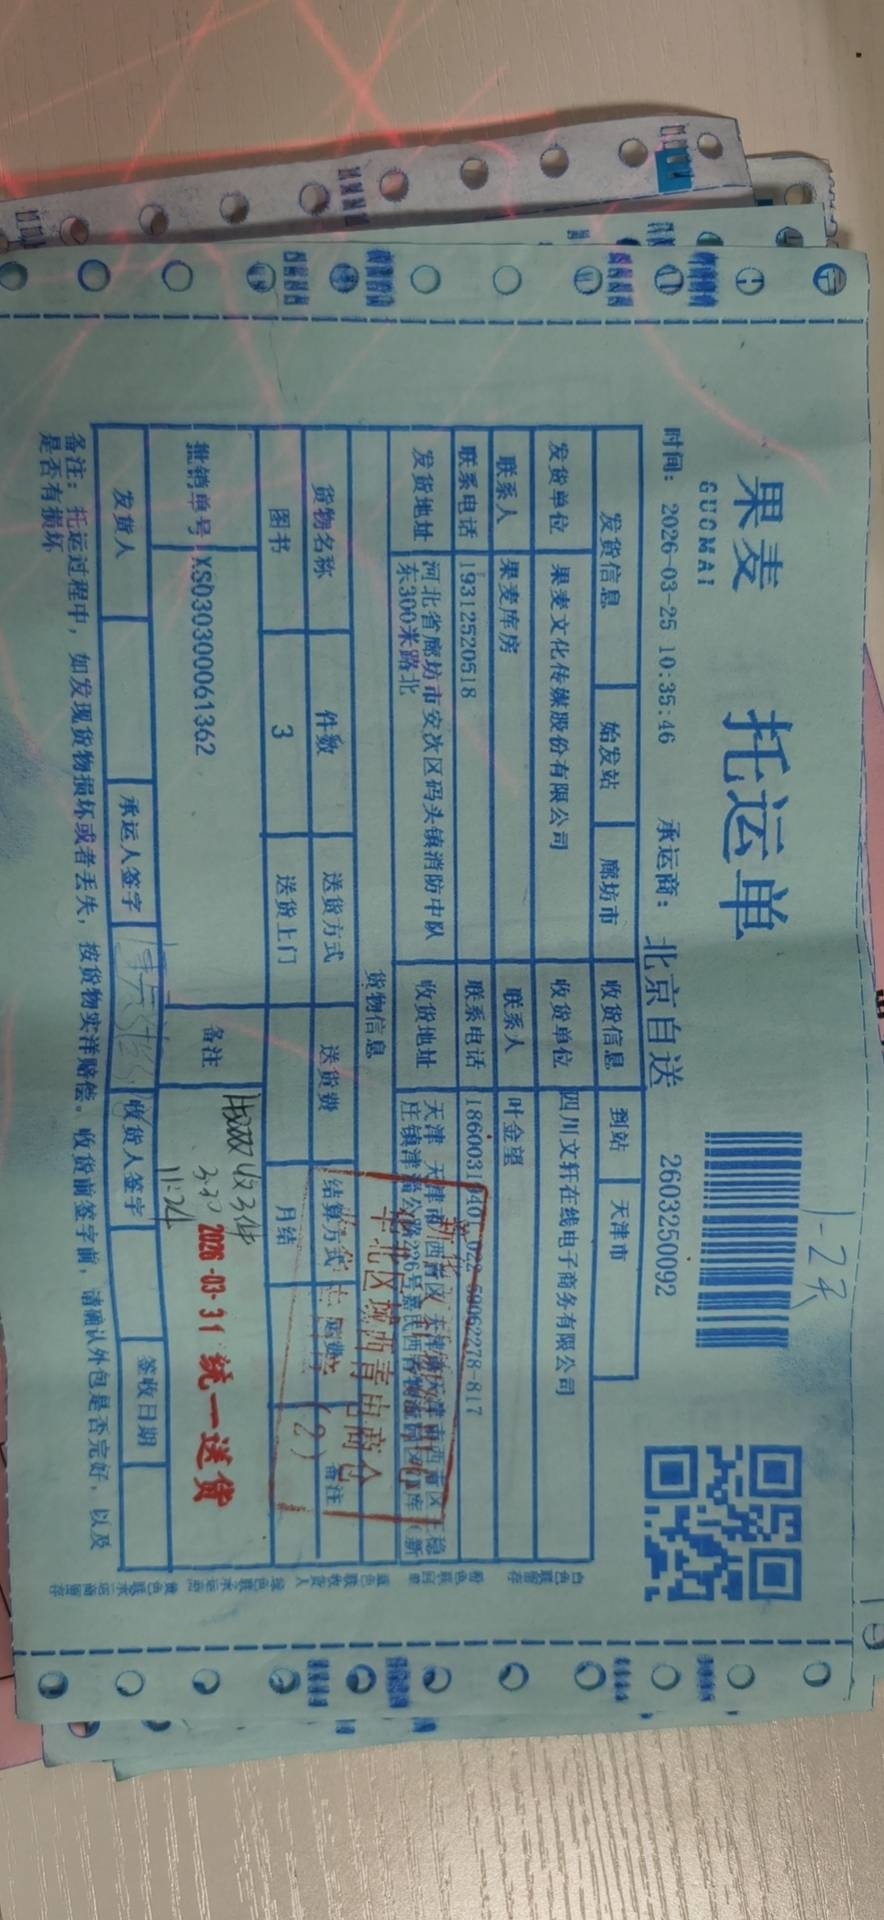 果麦
GUOMAI
托运单
1-2天
时间：2026-03-25 10:35:46 承运商：北京自送 2603250092
发货信息 始发站 廊坊市 收货信息 到站 天津市
发货单位 果麦文化传媒股份有限公司 收货单位 四川文轩在线电子商务有限公司
联系人 果麦库房 联系人 叶金望
联系电话 19312520518 联系电话
发货地址 河北省廊坊市安次区码头镇消防中队 收货地址 天津 天津市 西青区
东300米路北 庄镇津涞公路
货物信息
货物名称 件数 送货方式 送货费 结算方式 备注
图书 3 送货上门 月结
华北区域西青电商仓
(2)
批销单号 XS030300061362 备注
收3件
3.30
11:24
2026-03-31 统一送货
发货人 承运人签字 收货人签字 签收日期
备注：托运过程中，如发现货物损坏或者丢失，按货物实洋赔偿。收货前签字前，请确认外包是否完好，以及
是否有损坏